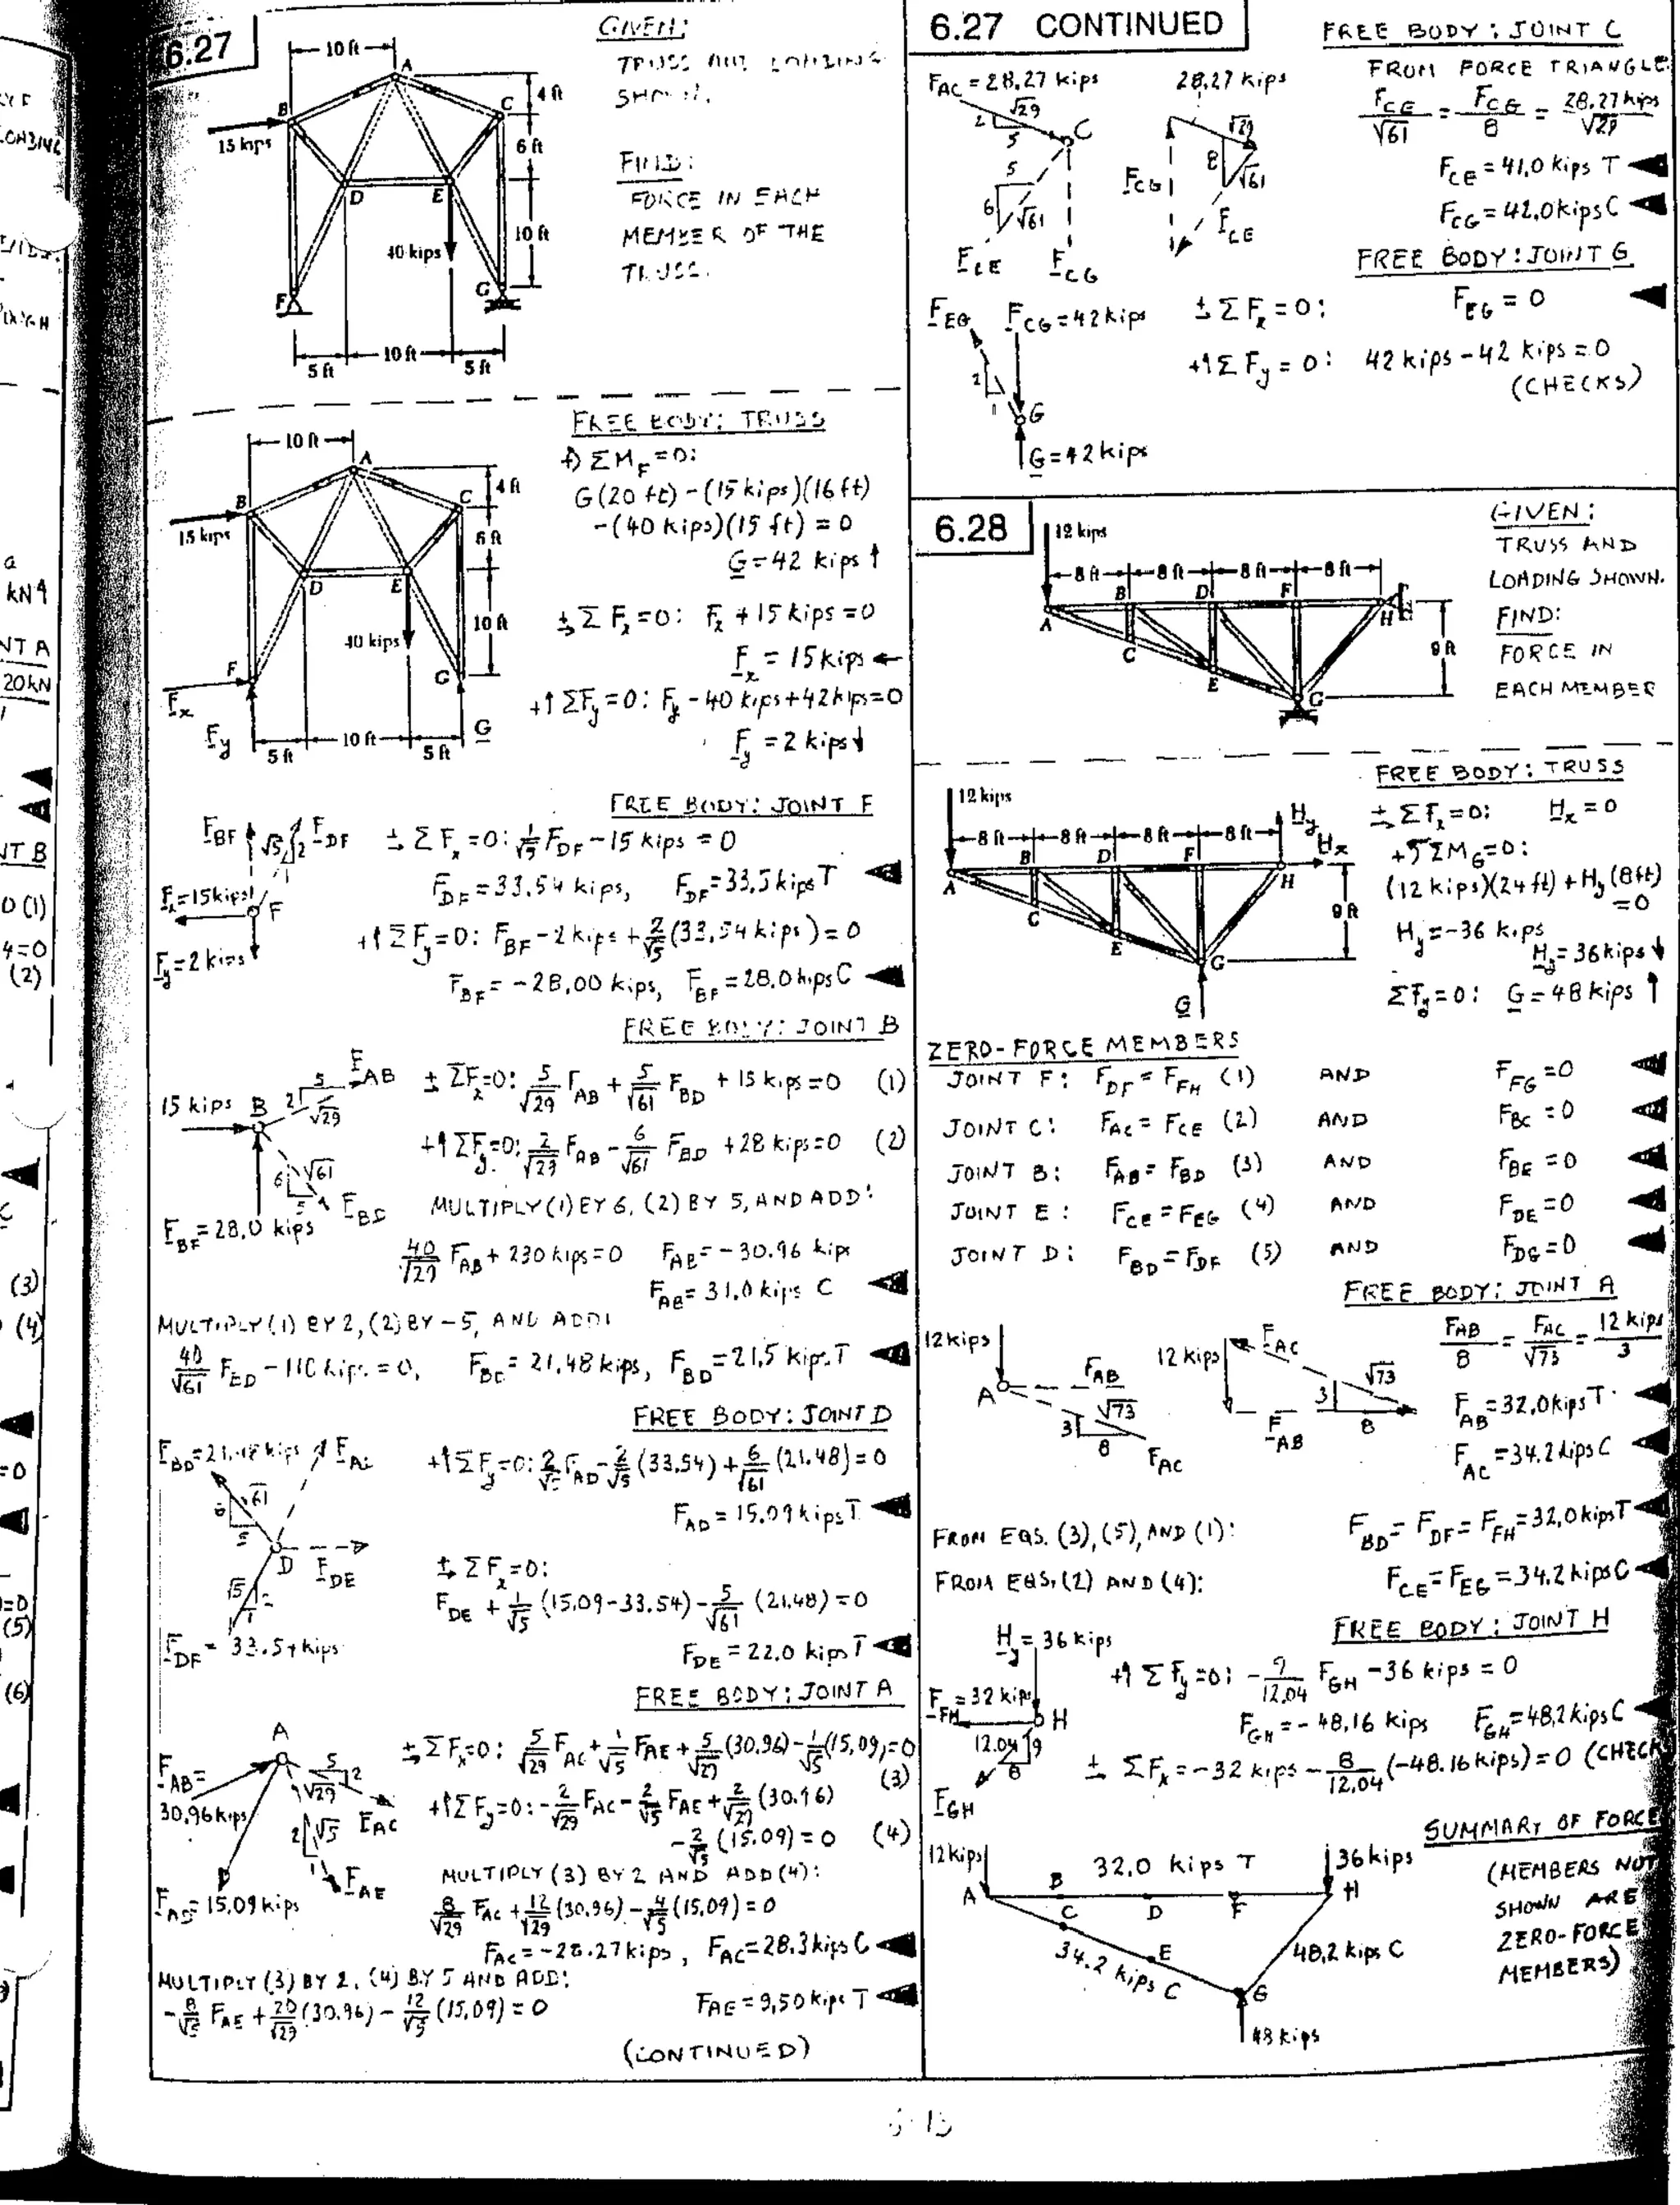 6.27
GIVEN:
TRUSS AND LOADING
SHOWN.
FIND:
FORCE IN EACH
MEMBER OF THE
TRUSS.
10 ft
A
B
C
4 ft
15 kips
6 ft
D
E
40 kips
10 ft
F
G
5 ft
10 ft
5 ft
FREE BODY: TRUSS
+) ΣM_F = 0:
G(20 ft) - (15 kips)(16 ft)
- (40 kips)(15 ft) = 0
G = 42 kips ↑
ΣF_x = 0: F_x + 15 kips = 0
F_x = 15 kips ←
+↑ΣF_y = 0: F_y - 40 kips + 42 kips = 0
F_y = 2 kips ↓
10 ft
A
B
C
4 ft
15 kips
6 ft
D
E
40 kips
10 ft
F
G
F_x
F_y
5 ft
10 ft
5 ft
G
FREE BODY: JOINT F
F_BF √5 2 F_DF
F_x = 15 kips F
F_y = 2 kips
ΣF_x = 0: 1/√5 F_DF - 15 kips = 0
F_DF = 33.54 kips, F_DF = 33.5 kips T
+↑ΣF_y = 0: F_BF - 2 kips + 2/√5 (33.54 kips) = 0
F_BF = -28.00 kips, F_BF = 28.0 kips C
FREE BODY: JOINT B
15 kips B 2 5 √29 F_AB
6 √61 5 F_BD
F_BF = 28.0 kips
ΣF_x = 0: 5/√29 F_AB + 5/√61 F_BD + 15 kips = 0 (1)
+↑ΣF_y = 0: 2/√29 F_AB - 6/√61 F_BD + 28 kips = 0 (2)
MULTIPLY (1) BY 6, (2) BY 5, AND ADD:
40/√29 F_AB + 230 kips = 0 F_AB = -30.96 kips
F_AB = 31.0 kips C
MULTIPLY (1) BY 2, (2) BY -5, AND ADD:
40/√61 F_BD - 110 kips = 0, F_BD = 21.48 kips, F_BD = 21.5 kips T
FREE BODY: JOINT D
F_BD = 21.48 kips F_AD
6 √61 5
D F_DE
√5 1 2
F_DF = 33.54 kips
+↑ΣF_y = 0: 2/√5 F_AD - 2/√5 (33.54) + 6/√61 (21.48) = 0
F_AD = 15.09 kips T
ΣF_x = 0:
F_DE + 1/√5 (15.09 - 33.54) - 5/√61 (21.48) = 0
F_DE = 22.0 kips T
FREE BODY: JOINT A
A
F_AB =
30.96 kips
5 √29 2 F_AC
2 √5 1 F_AE
F_AD = 15.09 kips
ΣF_x = 0: 5/√29 F_AC + 1/√5 F_AE + 5/√29 (30.96) - 1/√5 (15.09) = 0
(3)
+↑ΣF_y = 0: -2/√29 F_AC - 2/√5 F_AE + 2/√29 (30.96)
- 2/√5 (15.09) = 0 (4)
MULTIPLY (3) BY 2 AND ADD (4):
8/√29 F_AC + 12/√29 (30.96) - 4/√5 (15.09) = 0
F_AC = -28.27 kips, F_AC = 28.3 kips C
MULTIPLY (3) BY 2, (4) BY 5 AND ADD:
-8/√5 F_AE + 20/√29 (30.96) - 12/√5 (15.09) = 0 F_AE = 9.50 kips T
(CONTINUED)
6.27 CONTINUED
FREE BODY: JOINT C
F_AC = 28.27 kips
√29 2 5 C
5 6 √61
F_CE F_CG
28.27 kips
√29 8 √61
F_CG F_CE
FROM FORCE TRIANGLE
F_CE/√61 = F_CG/8 = 28.27 kips/√29
F_CE = 41.0 kips T
F_CG = 42.0 kips C
FREE BODY: JOINT G
F_EG F_CG = 42 kips
2 1 G
G = 42 kips
ΣF_x = 0: F_EG = 0
+↑ΣF_y = 0: 42 kips - 42 kips = 0
(CHECKS)
6.28
GIVEN:
TRUSS AND
LOADING SHOWN.
FIND:
FORCE IN
EACH MEMBER
12 kips
8 ft 8 ft 8 ft 8 ft
A B D F H
C E G
9 ft
FREE BODY: TRUSS
12 kips
8 ft 8 ft 8 ft 8 ft
H_y
H_x
A B D F H
C E G
9 ft
G
ΣF_x = 0: H_x = 0
+ΣM_G = 0:
(12 kips)(24 ft) + H_y (8 ft)
= 0
H_y = -36 kips
H_y = 36 kips ↓
ΣF_y = 0: G = 48 kips ↑
ZERO-FORCE MEMBERS
JOINT F: F_DF = F_FH (1) AND F_FG = 0
JOINT C: F_AC = F_CE (2) AND F_BC = 0
JOINT B: F_AB = F_BD (3) AND F_BE = 0
JOINT E: F_CE = F_EG (4) AND F_DE = 0
JOINT D: F_BD = F_DF (5) AND F_DG = 0
FREE BODY: JOINT A
12 kips
A F_AB
√73 3 8
F_AC
12 kips F_AC
√73 3 8
F_AB
F_AB/8 = F_AC/√73 = 12 kips/3
F_AB = 32.0 kips T
F_AC = 34.2 kips C
FROM EQS. (3), (5), AND (1): F_BD = F_DF = F_FH = 32.0 kips T
FROM EQS. (2) AND (4): F_CE = F_EG = 34.2 kips C
FREE BODY: JOINT H
H_y = 36 kips
F_FH = 32 kips
H
12.04 9
8
F_GH
+↑ΣF_y = 0: -9/12.04 F_GH - 36 kips = 0
F_GH = -48.16 kips F_GH = 48.2 kips C
ΣF_x = -32 kips - 8/12.04 (-48.16 kips) = 0 (CHECK
SUMMARY OF FORCE
(MEMBERS NOT
SHOWN ARE
ZERO-FORCE
MEMBERS)
12 kips
32.0 kips T
36 kips
A B C D F H
34.2 kips C
E
48.2 kips C
G
48 kips